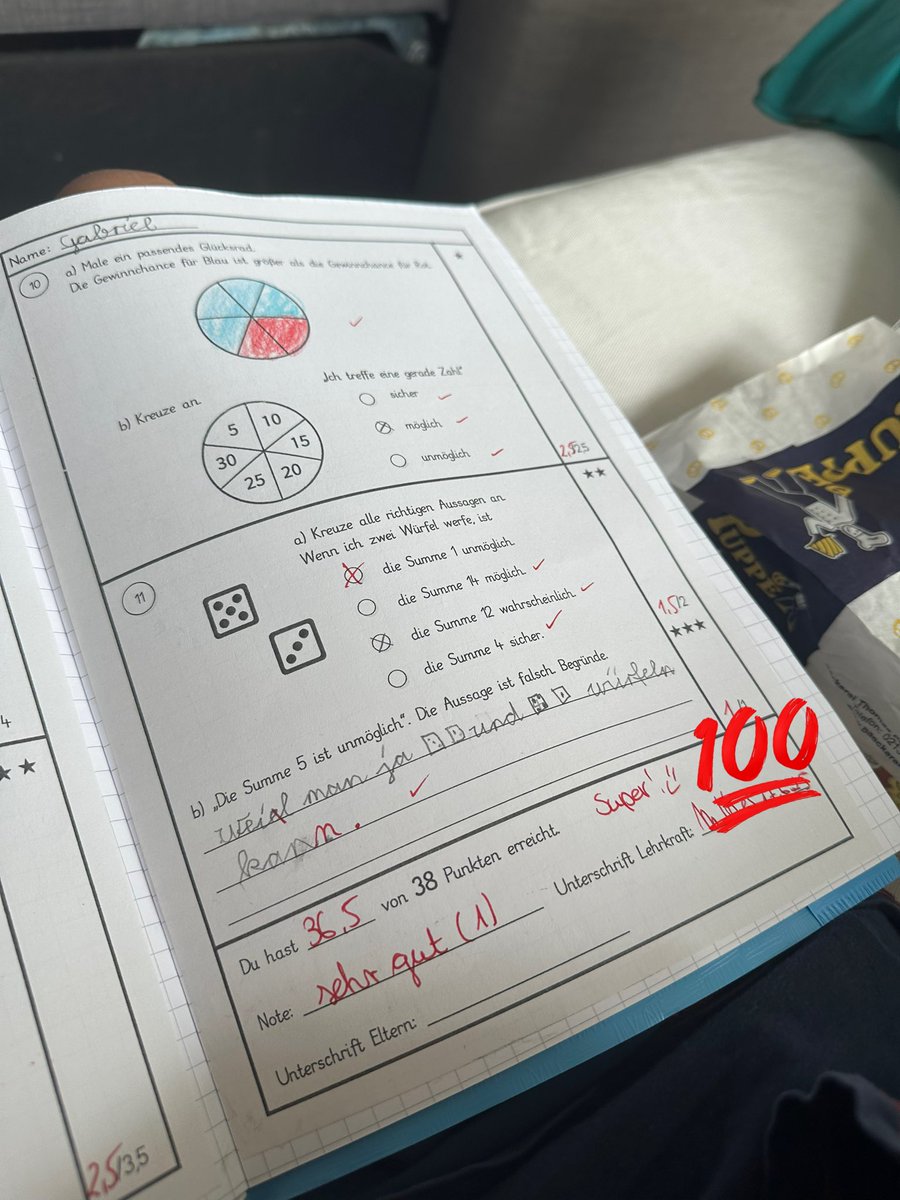 Name: Gabriel
10
a) Male ein passendes Glücksrad.
Die Gewinnchance für Blau ist größer als die Gewinnchance für Rot.
★
b) Kreuze an.
5 10 15 20 25 30
„Ich treffe eine gerade Zahl“
sicher
möglich
unmöglich
2,5/2,5
11
a) Kreuze alle richtigen Aussagen an.
Wenn ich zwei Würfel werfe, ist
★★
die Summe 1 unmöglich.
die Summe 14 möglich.
die Summe 12 wahrscheinlich.
die Summe 4 sicher.
1,5/2
★★★
b) „Die Summe 5 ist unmöglich“. Die Aussage ist falsch. Begründe.
Weil man ja und würfeln
kann.
100
Super!
Du hast 36,5 von 38 Punkten erreicht.
Note: sehr gut (1)
Unterschrift Lehrkraft:
Unterschrift Eltern:
4
★★
2,5/3,5